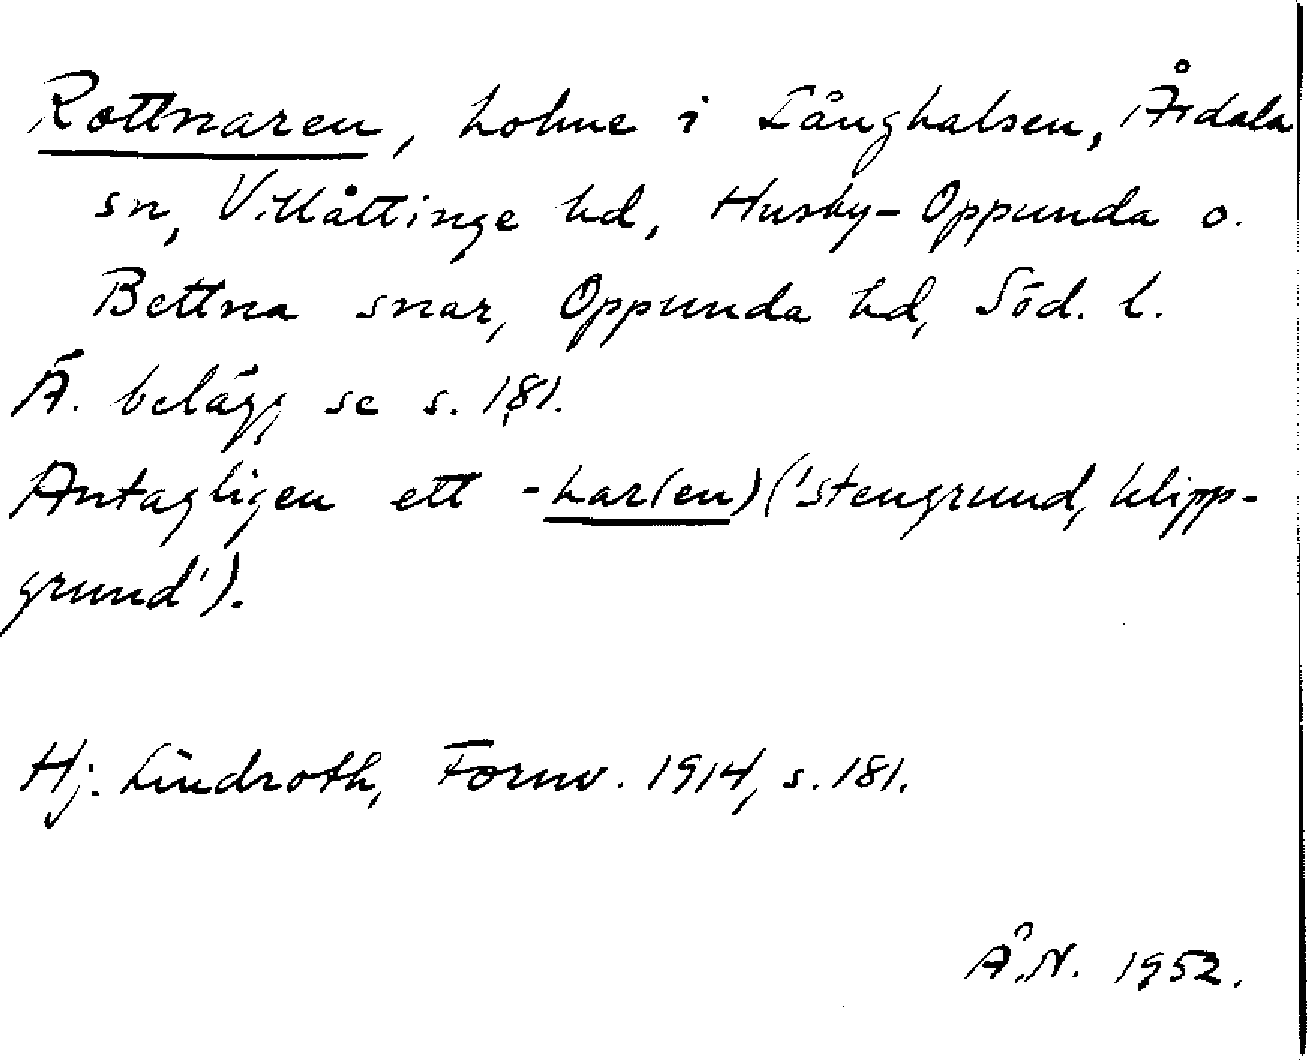 Rottnaren, holme i Långhalsen, Årdala
sn, Villåttinge hd, Husby-Oppunda o.
Bettna snar, Oppunda hd, Söd. l.
Ä. belägg se s. 181.
Antagligen ett -har(en) ('stengrund, klipp-
grund').
Hj. Lindroth, Fornv. 1914, s. 181.
Å.N. 1952.